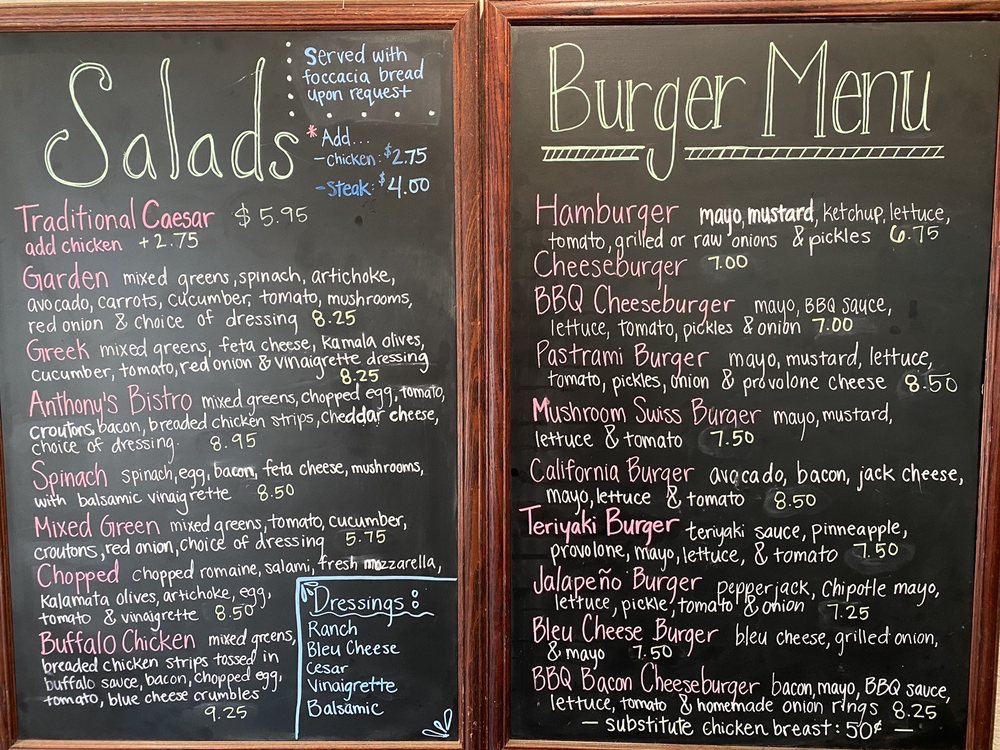 Salads
Served with
foccacia bread
upon request
* Add...
- chicken: $2.75
- Steak: $4.00
Traditional Caesar $5.95
add chicken +2.75
Garden mixed greens, spinach, artichoke,
avocado, carrots, cucumber, tomato, mushrooms,
red onion & choice of dressing 8.25
Greek mixed greens, feta cheese, Kamala olives,
cucumber, tomato, red onion & vinaigrette dressing
8.25
Anthony's Bistro mixed greens, chopped egg, tomato,
croutons, bacon, breaded chicken strips, cheddar cheese,
choice of dressing. 8.95
Spinach spinach, egg, bacon, feta cheese, mushrooms,
with balsamic vinaigrette 8.50
Mixed Green mixed greens, tomato, cucumber,
croutons, red onion, choice of dressing 5.75
Chopped chopped romaine, salami, fresh mozzarella,
Kalamata olives, artichoke, egg,
tomato & vinaigrette 8.50
Buffalo Chicken mixed greens,
breaded chicken strips tossed in
buffalo sauce, bacon, chopped egg,
tomato, blue cheese crumbles
9.25
Dressings:
Ranch
Bleu Cheese
Cesar
Vinaigrette
Balsamic
Burger Menu
Hamburger mayo, mustard, ketchup, lettuce,
tomato, grilled or raw onions & pickles 6.75
Cheeseburger 7.00
BBQ Cheeseburger mayo, BBQ sauce,
lettuce, tomato, pickles & onion 7.00
Pastrami Burger mayo, mustard, lettuce,
tomato, pickles, onion & provolone cheese 8.50
Mushroom Swiss Burger mayo, mustard,
lettuce & tomato 7.50
California Burger avocado, bacon, jack cheese,
mayo, lettuce & tomato 8.50
Teriyaki Burger teriyaki sauce, pinneapple,
provolone, mayo, lettuce, & tomato 7.50
Jalapeño Burger pepperjack, Chipotle mayo,
lettuce, pickle, tomato & onion 7.25
Bleu Cheese Burger bleu cheese, grilled onion,
& mayo 7.50
BBQ Bacon Cheeseburger bacon, mayo, BBQ sauce,
lettuce, tomato & homemade onion rings 8.25
- substitute chicken breast: 50¢ -